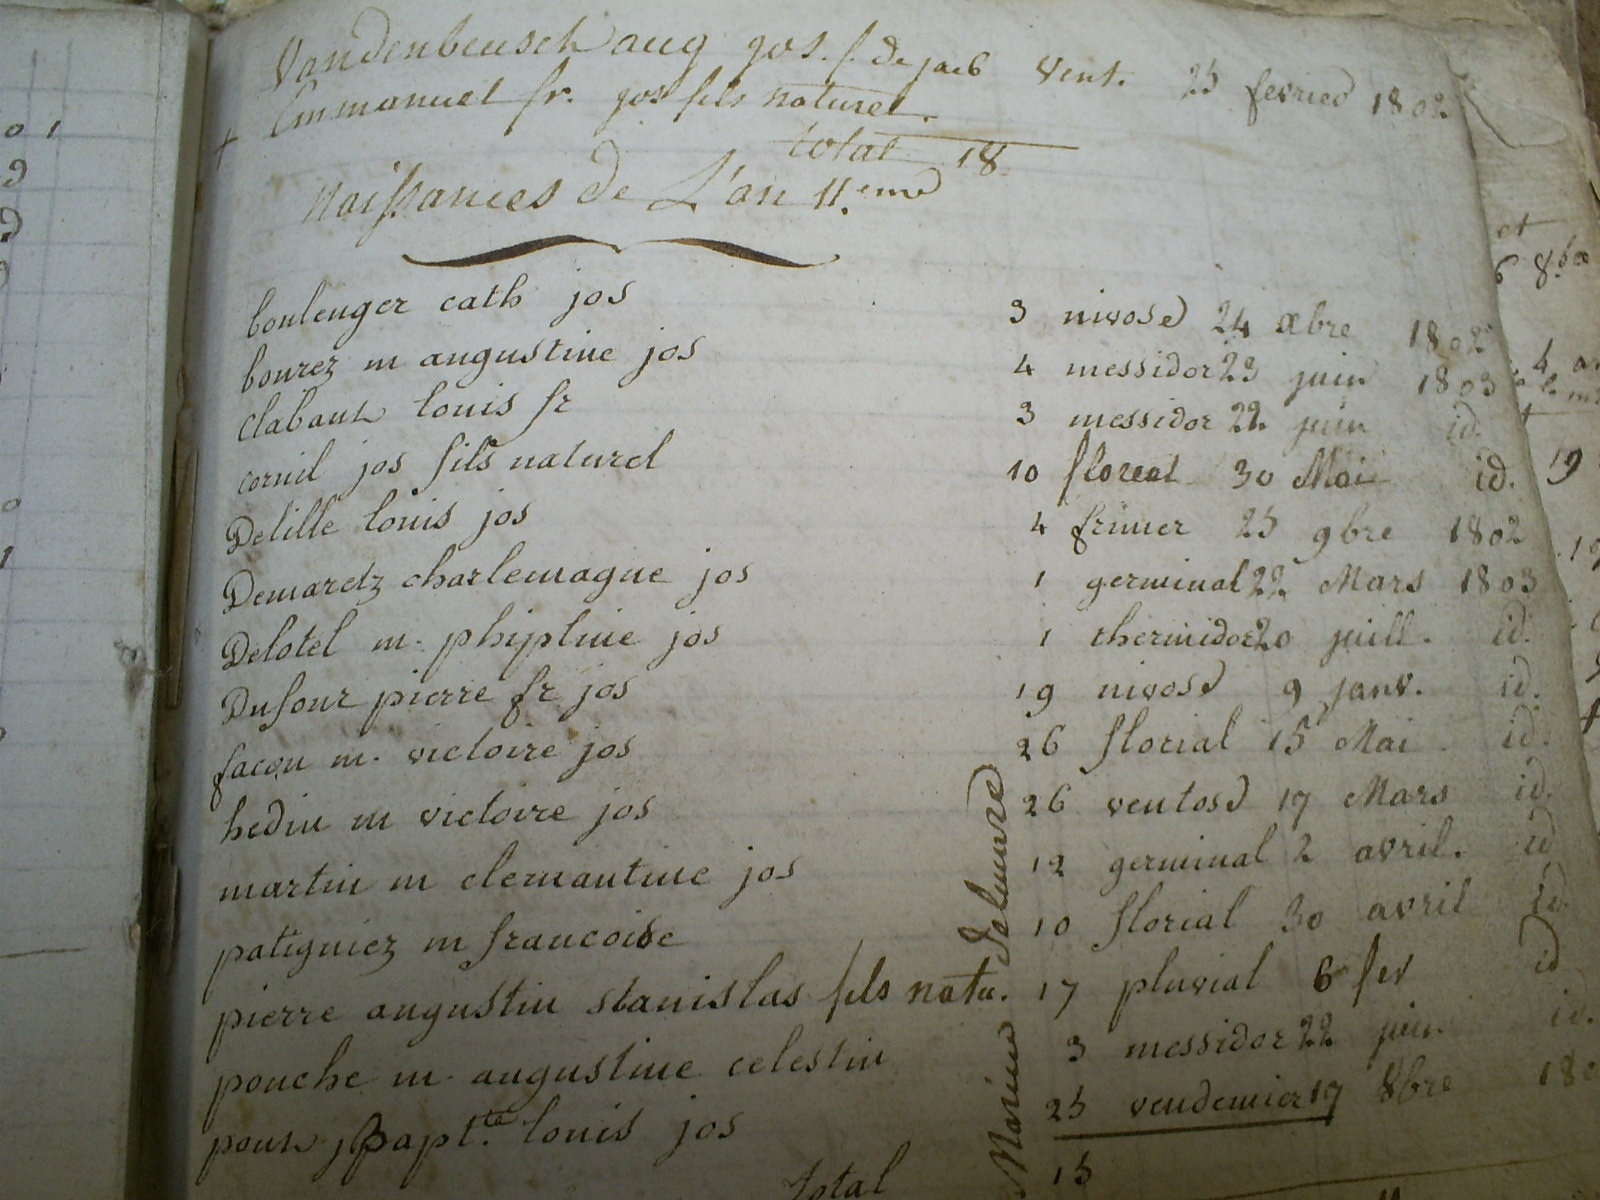 Vandenbeusch aug jos. f. de jacb vent. 25 fevrier 1802
+ Emmanuel fr. jos fils naturel.
total 18
Naissances de L'an 11.eme
boulenger cath jos 3 nivose 24 xbre 1802
bourez m augustine jos 4 messidor 23 juin 1803
Clabaut louis fr 3 messidor 22 juin id.
cornil jos fils naturel 10 floreal 30 Mai id.
Delille louis jos 4 frimer 25 9bre 1802
Demaretz charlemagne jos 1 germinal 22 Mars 1803
Delotel m. phipline jos 1 thermidor 20 juill. id.
Dufour pierre fr jos 19 nivose 9 janv. id.
facon m. victoire jos 26 florial 15 Mai id.
hedin m victoire jos 26 ventose 17 Mars id.
martin m clemantine jos 12 germinal 2 avril. id
patigniez m francoise 10 florial 30 avril id.
pierre augustin stanislas fils natu. 17 pluvial 6 fev id
pouche m. augustine celestin 3 messidor 22 juin id.
pout jBapt.te louis jos 25 vendemier 17 8bre 180
Total 15